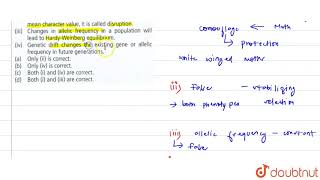 mean character value, it is called disruption
(iii) Changes in allelic frequency in a population will
lead to Hardy-Weinberg equilibrium.
(iv) Generic drift changes the existing gene or allelic
frequency in future generations.
(a) Only (ii) is correct.
(b) Only (iv) is correct.
(c) Both (i) and (iii) are correct.
(d) Both (i) and (iii) are correct.
camouflage ← Moth
↳ protection
white winged mother
(ii) false - stabilizing
→ both phenotypic selection
(iii) allelic frequency - constant
↳ false
doubtnut